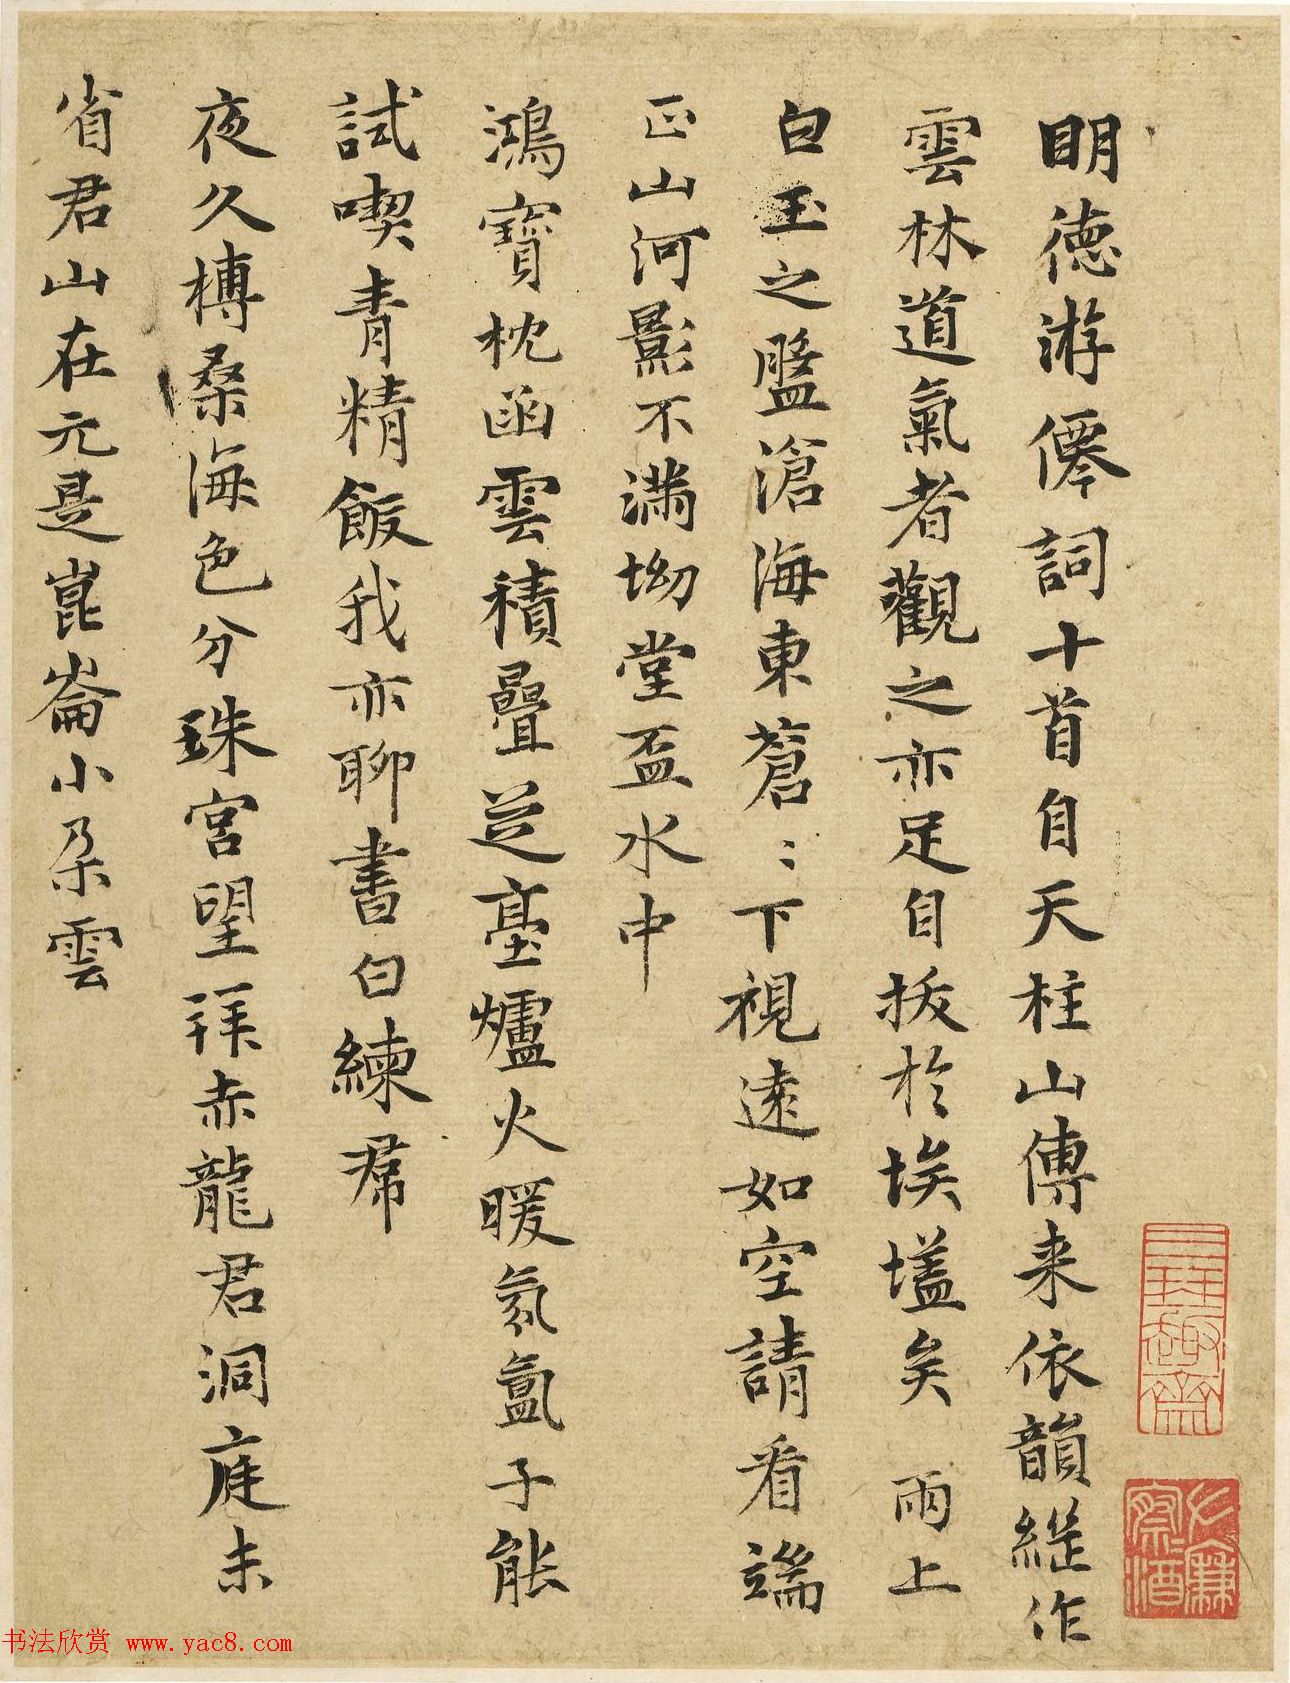 明德游僊詞十首自天柱山傳来依韻継作
雲林道氣者觀之亦足自拔於埃壒矣 雨上
白玉之盤滄海東蒼〻下視遠如空請看端
正山河影不滿坳堂盃水中
鴻寶枕函雲積疊芝臺爐火暖氛氲子能
試喫青精飯我亦聊書白練帬
夜久榑桑海色分珠宮望拜赤龍君洞庭未
省君山在元是崑崙小朵雲
三琴趣齋
书法欣赏 www.yac8.com